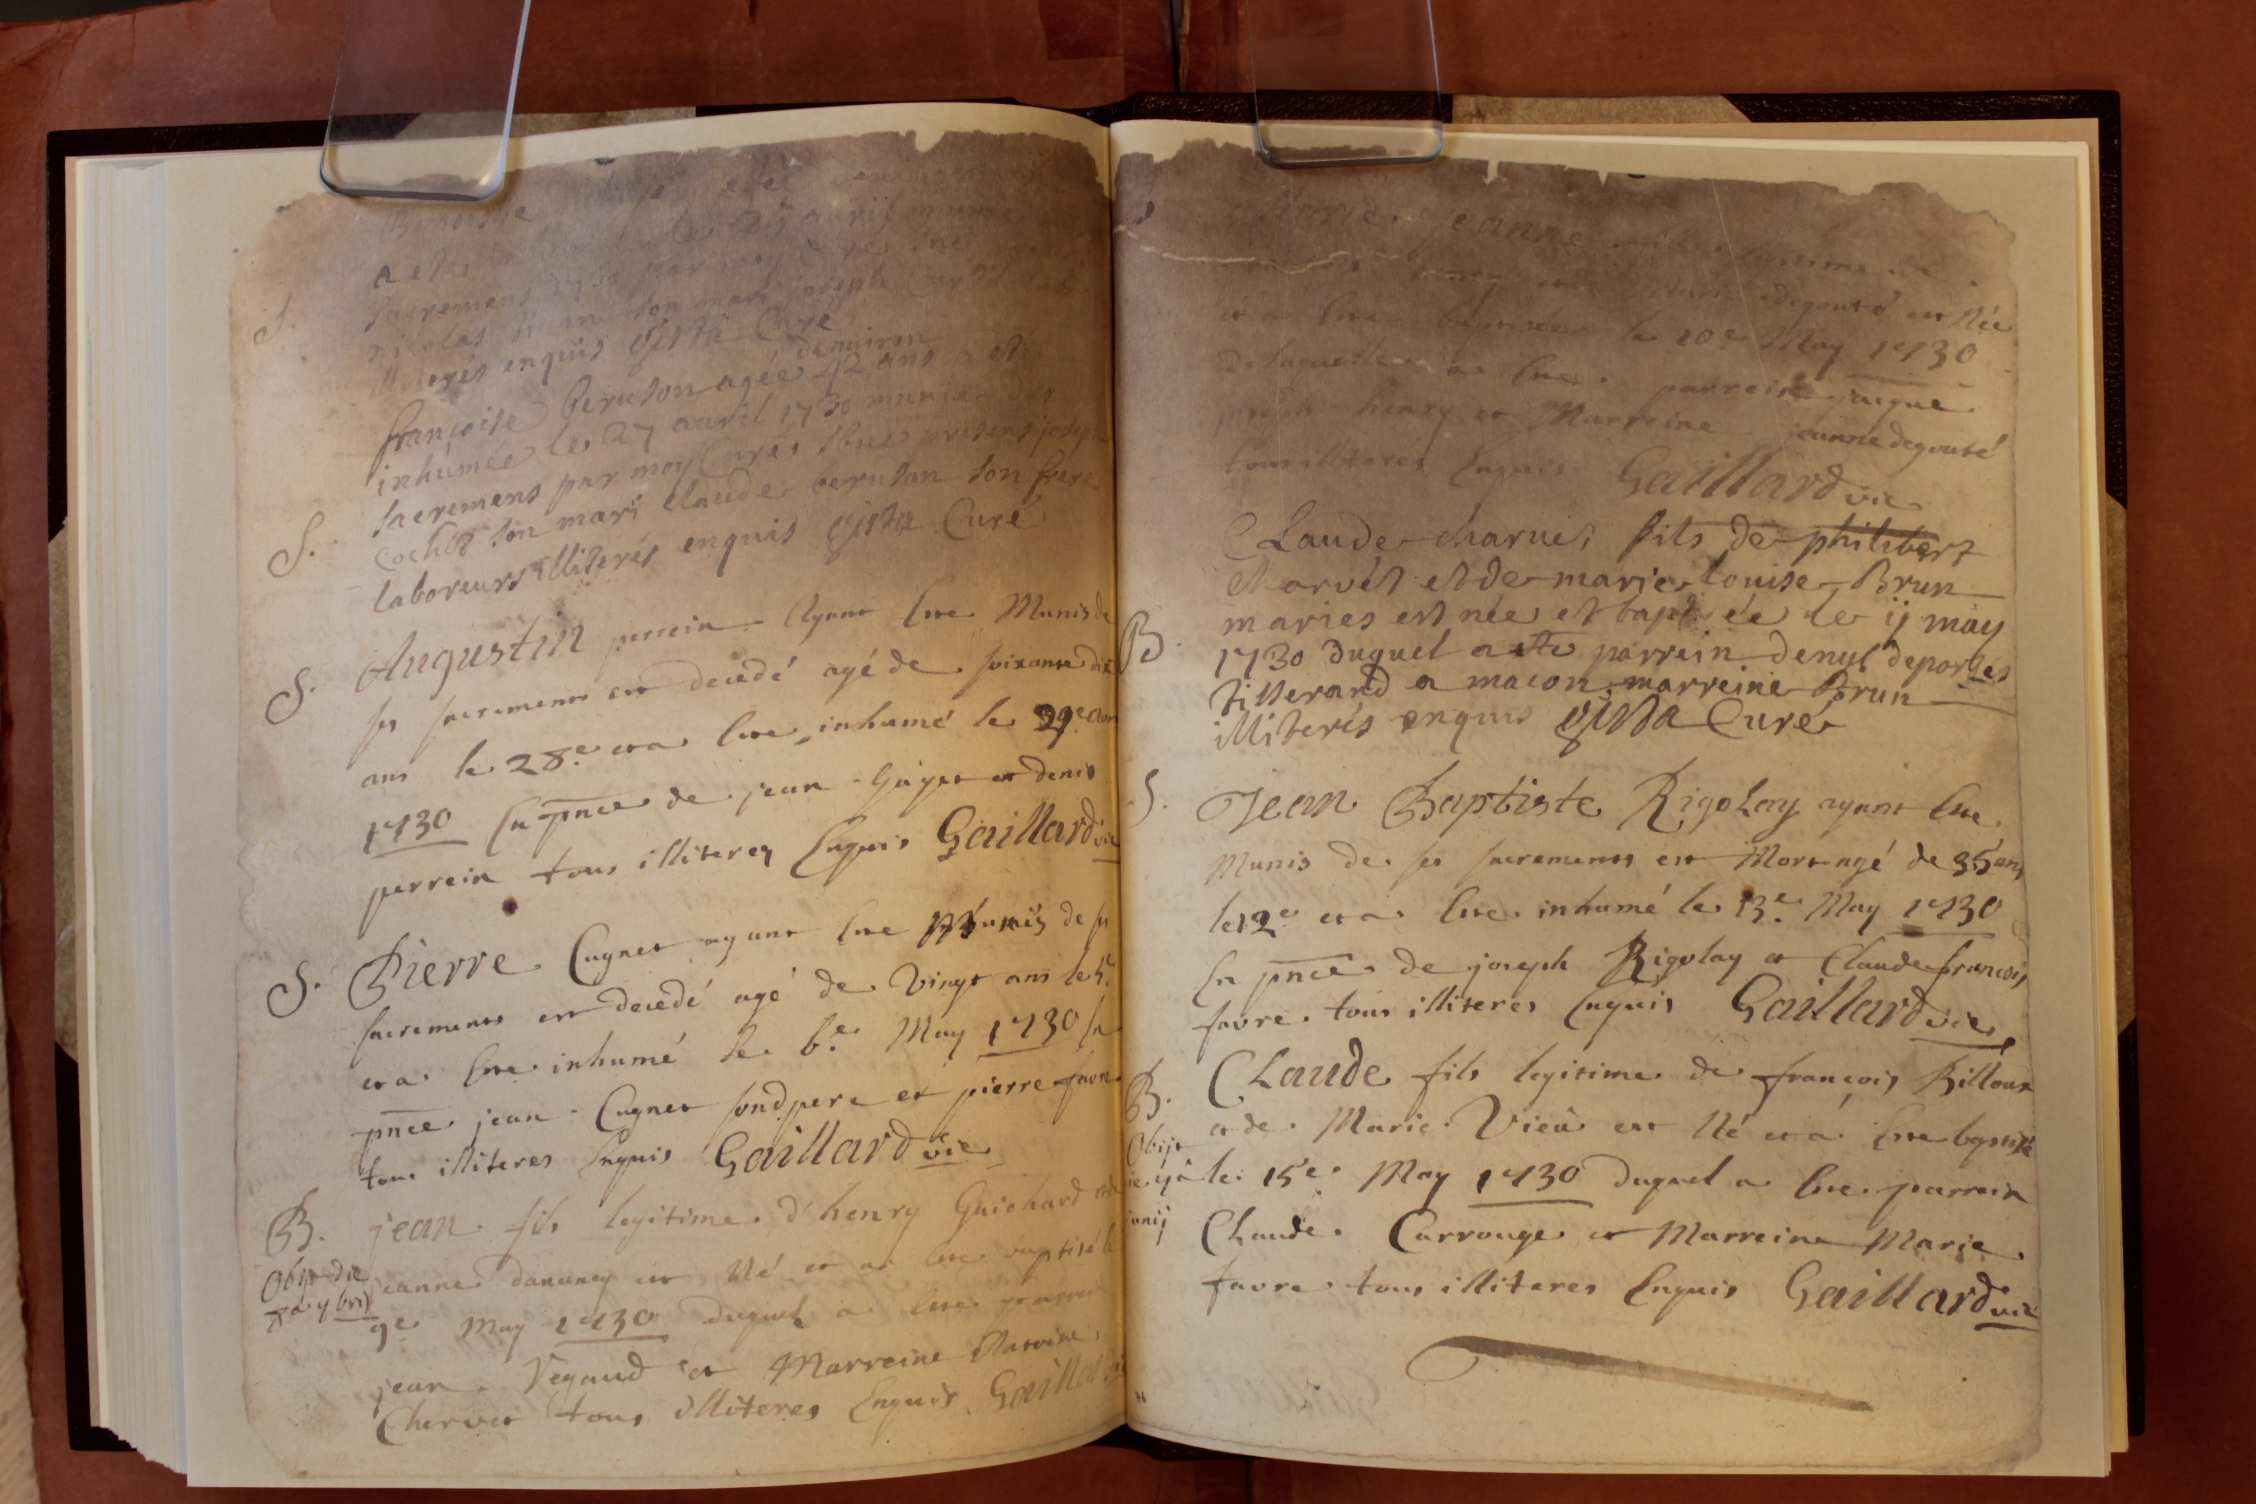 Benoiste
a ete le 25 avrij munie
S. sacremens 1730 par moy Curé
nicolas son mari joseph
enquis Gista Curé
francoise beruson agée denuiron 42 ans a ete
inhúmée le 27 auril 1730 munie des
sacremens par moy Curés sbne presens joseph
S. cochet son mari Claude beruson son frere
laboreurs illiterés enquis Gista Curé
S. Augustin perrein Ayant Ette Munis de
ses sacrements est decedé agé de soixante dix
ans le 28e et a Ette inhumé le 29e avr
1730 En pnce de jean Gayet et denis
perrein tous illiteres Enquis Gaillard vic
S. Pierre Cugnet ayant Ette Munis de ses
sacrements est decedé agé de Vingt ans le 5e
et a Ette inhumé le 6e May 1730 En
pnce jean Cugnet sond pere et pierre favre
tous illiteres Enquis Gaillard vic
B. jean fils legitime d'henry Guichard et de
Obijt die jeanne danancy est Né et a Ette baptisé le
7a 7bris 9e May 1730 duquel a Ette parrein
jean Vegaud et Marreine Antoine
Chervet tous illiteres Enquis Gaillard vic
Jeanne fille legitime de
henry et degouté est Née
et a Ette baptisée le 10e May 1730
De laquelle a Ette parrein jacque
joseph henry et Marreine jeanne degouté
tous illiteres Enquis Gaillard vic
Claude charuet fils de philibert
charvét et de marie louise Brun
maries est née et baptisée le ij may
B 1730 duquel a ete parrein denys deportes
tisserand a macon marreine Brun
illiterés enquis Gista Curé
S. Jean Baptiste Rigolay ayant Ette
Munis de ses sacrements est Mort agé de 35 ans
le 12e et a Ette inhumé le 13e May 1730
En pnce de joseph Rigolay et Claude francois
favre tous illiteres Enquis Gaillard vic
B. Claude fils legitime de françois Billoux
Obijt et de Marie Vieu est Né et a Ette baptisé
die 9a le 15e May 1730 duquel a Ette parrein
junij Claude Carrouge et Marreine Marie
favre tous illiteres Enquis Gaillard vic